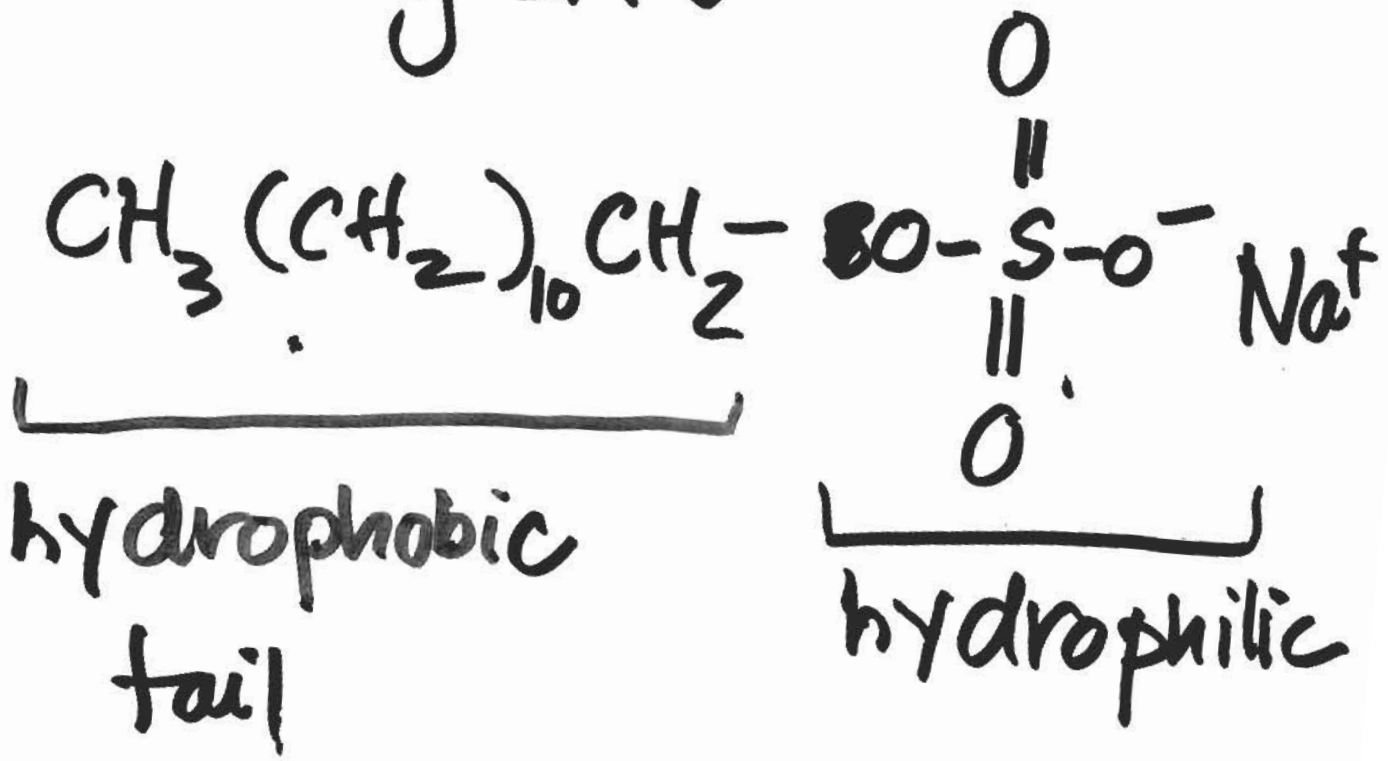 O
||
CH₃(CH₂)₁₀CH₂–O–S–O⁻ Na⁺
||
O
hydrophobic
tail
hydrophilic